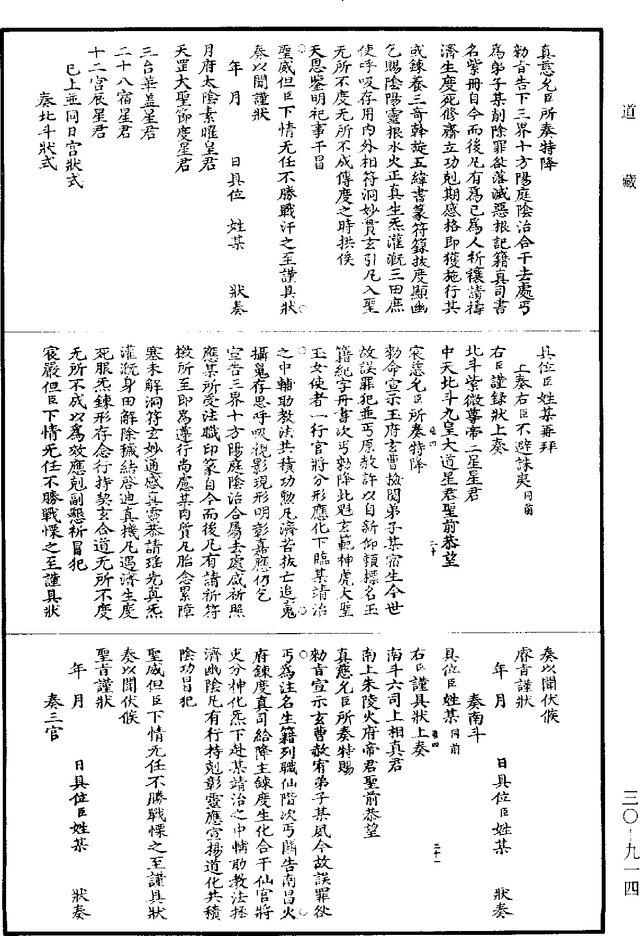 道藏
真慈允臣所奏特降
勑旨告下三界十方陽庭陰治合干去處丐
為弟子某削除罪欲落滅惡根記籍真司書
名紫冊自今而後凡有為己為人祈禳請禱
濟生度死修齋立功剋期感格即獲施行其
或鍊養三奇斡旋五緯書篆符籙拔度顯幽
乞賜陰陽靈根水火正真生炁灌溉三田庶
使呼吸存用內外相符洞妙貫玄引凡入聖
無所不度無所不成傳度之時拱俟
天恩鑒明祀事干冒
聖威但臣下情無任不勝戰汗之至謹具狀
奏以聞謹狀
年 月 日具位 姓某 狀奏
月府太陰素曜皇君
天罡大聖節度星君
三台華蓋星君
二十八宿星君
十二宮辰星君
已上並同日宮狀式
奏北斗狀式
具位臣姓某再拜
上奏右臣不避誅夷同前
右臣謹錄狀上奏
北斗紫微尊帝二星星君
中天北斗九皇大道星君聖前恭望
宸慈允臣所奏特降
勑命宣示玉府玄曹檢閱弟子某宿生今世
故誤罪犯並丐原赦許以自新仰領標名玉
籍紀字丹書次丐勑降北魁玄範神虎大聖
玉女使者一行官將分形應化下臨某靖治
之中輔助教法共積功勳凡濟苦拔亡追䰟
攝䰟存思呼吸視影現形明彰嘉應仍乞
宣告三界十方陽庭陰治合屬去處咸祈照
應某所受法職印篆自今而後凡有請祈符
檄所至即為遵行尚慮某肉質凡胎念累障
塞未解洞符玄妙通感真靈恭請瑶光真炁
灌溉身田解除穢結啓迪真機凡遇濟生度
死服炁鍊形存念行持契玄合道無所不度
無所不成以為效應剋副懇祈冒犯
宸嚴但臣下情無任不勝戰慄之至謹具狀
奏以聞伏候
睿旨謹狀
年 月 日具位臣姓某 狀奏
奏南斗
具位臣姓某同前
右臣謹具狀上奏
南斗六司上相真君
南上朱陵火府帝君聖前恭望
真慈允臣所奏特賜
勑旨宣示玄曹赦宥弟子某夙今故誤罪欲
丐為注名生籍列職仙階次丐關告南昌火
府鍊度真司給降主鍊度生化合干仙官將
吏分神化炁下赴某靖治之中輔助教法拯
濟幽陰凡有行持剋彰靈應宣揚道化共積
陰功冒犯
聖威但臣下情無任不勝戰慄之至謹具狀
奏以聞伏候
聖旨謹狀
年 月 日具位臣姓某 狀奏
奏三官
三〇－九一四